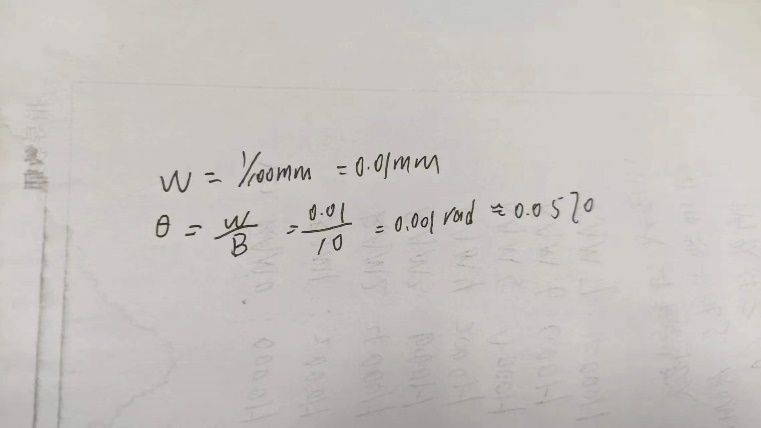 W = 1/100mm = 0.01mm
θ = W/B = 0.01/10 = 0.001 rad ≈ 0.0570